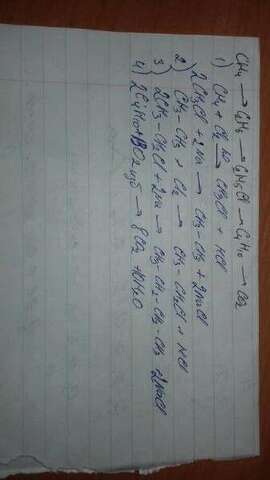 CH4 → C2H6 → C2H5Cl → C4H10 → CO2
1) CH4 + Cl2 → CH3Cl + HCl
2CH3Cl + 2Na → CH3-CH3 + 2NaCl
2) CH3-CH3 + Cl2 → CH3-CH2Cl + HCl
3) 2CH3-CH2Cl + 2Na → CH3-CH2-CH2-CH3 + 2NaCl
4) 2C4H10 + 13O2 изб → 8CO2 + 10H2O